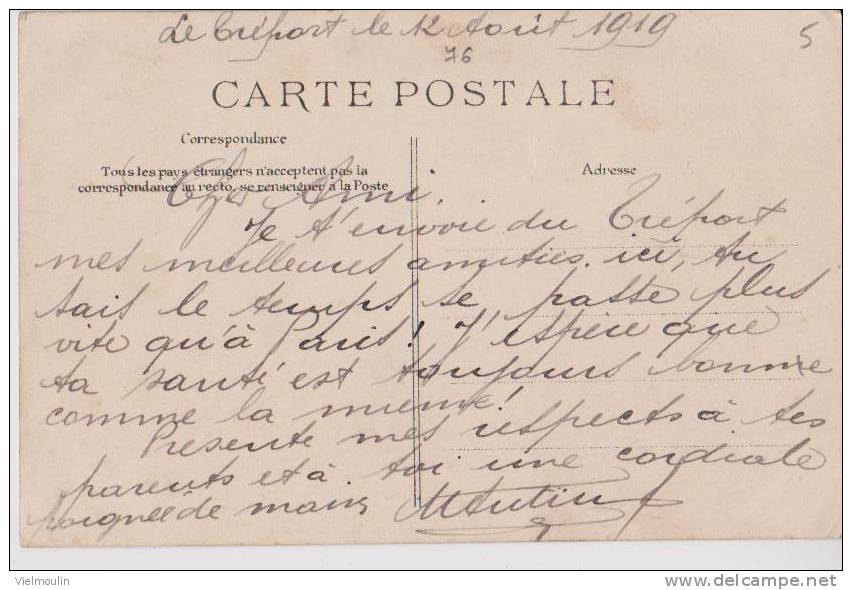 Le Tréport le 12 Août 1919
5
76
CARTE POSTALE
Correspondance
Tous les pays étrangers n'acceptent pas la
correspondance au recto, se renseigner à la Poste
Adresse
Cher Ami.
Je t'envoie du Tréport
mes meilleures amitiés. ici, tu
sais le temps se passe plus
vite qu'à Paris! J'espère que
ta santé est toujours bonne
comme la mienne!
Présente mes respects à tes
parents et à toi une cordiale
poignée de main
Vielmoulin
delcampe.net